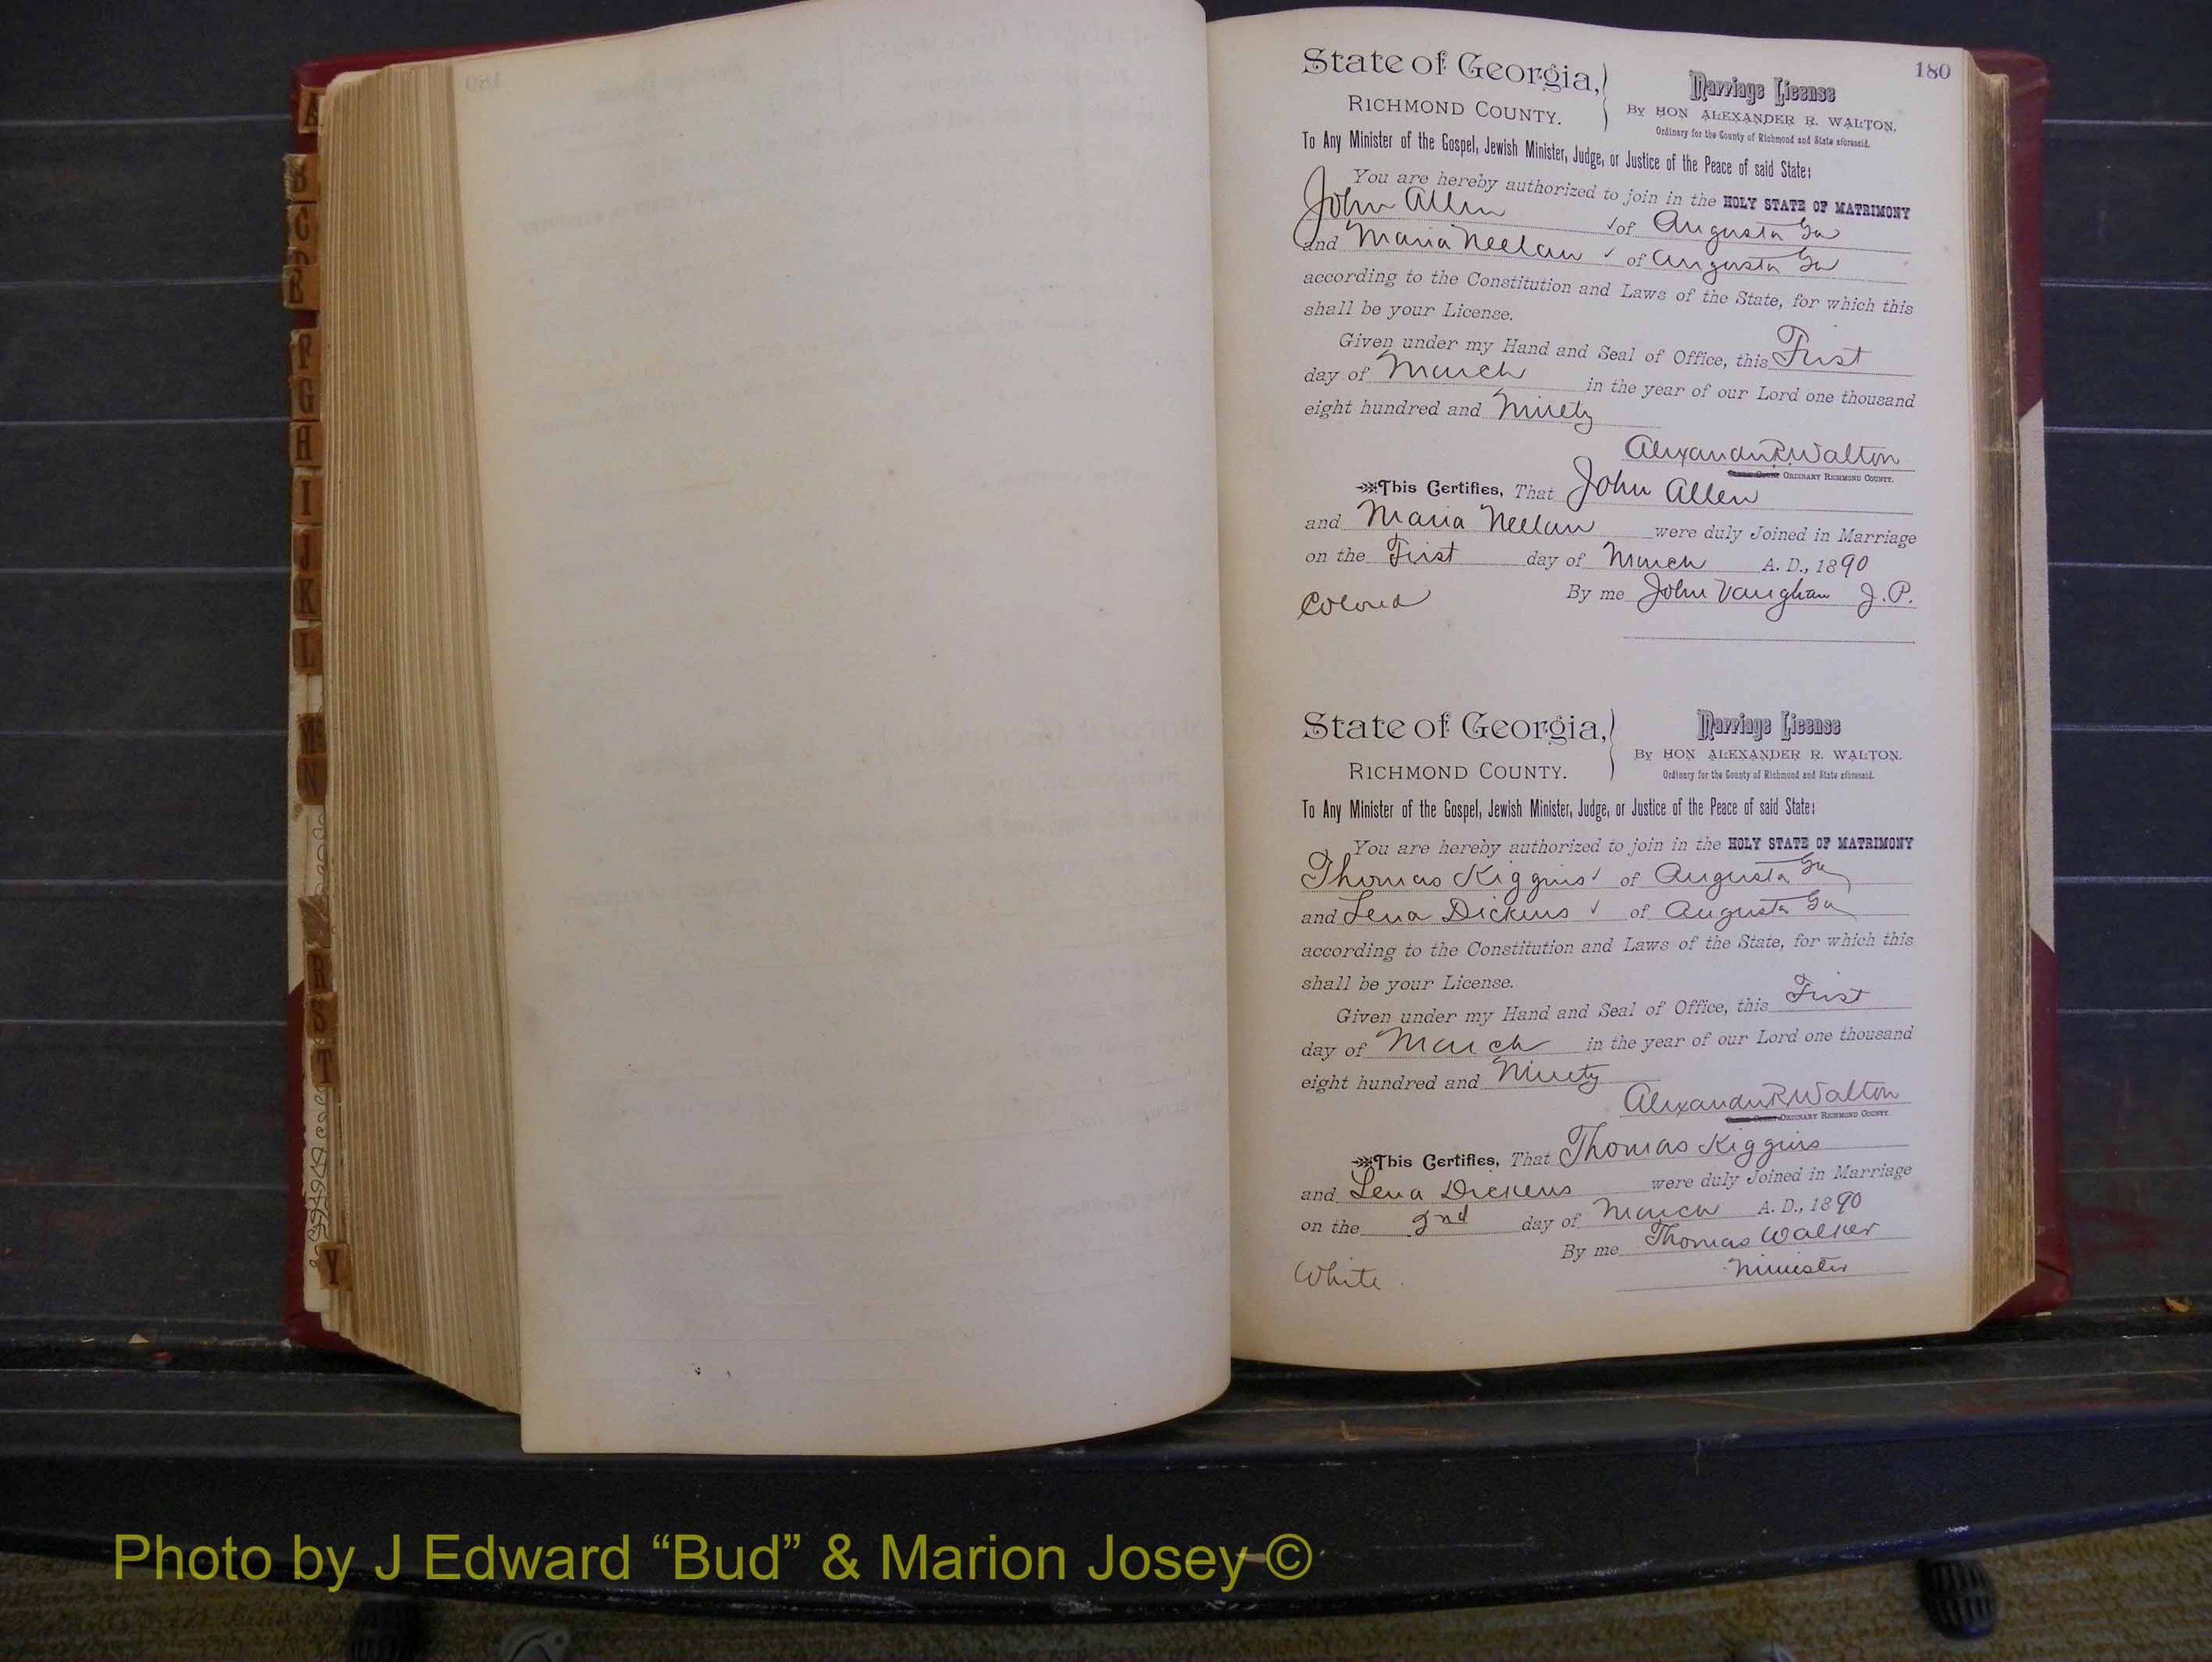 180
State of Georgia,
RICHMOND COUNTY.
Marriage License
By HON ALEXANDER R. WALTON,
Ordinary for the County of Richmond and State aforesaid.
To Any Minister of the Gospel, Jewish Minister, Judge, or Justice of the Peace of said State:
You are hereby authorized to join in the HOLY STATE OF MATRIMONY
John Allen of Augusta Ga
and Maria Neelan of Augusta Ga
according to the Constitution and Laws of the State, for which this
shall be your License.
Given under my Hand and Seal of Office, this First
day of March in the year of our Lord one thousand
eight hundred and Ninety
Alexander R. Walton
ORDINARY RICHMOND COUNTY.
This Certifies, That John Allen
and Maria Neelan were duly Joined in Marriage
on the First day of March A. D., 1890
Colored By me John Vaughan J.P.
State of Georgia,
RICHMOND COUNTY.
Marriage License
By HON ALEXANDER R. WALTON,
Ordinary for the County of Richmond and State aforesaid.
To Any Minister of the Gospel, Jewish Minister, Judge, or Justice of the Peace of said State:
You are hereby authorized to join in the HOLY STATE OF MATRIMONY
Thomas Kiggins of Augusta Ga
and Lena Dickens of Augusta Ga
according to the Constitution and Laws of the State, for which this
shall be your License.
Given under my Hand and Seal of Office, this First
day of March in the year of our Lord one thousand
eight hundred and Ninety
Alexander R Walton
ORDINARY RICHMOND COUNTY.
This Certifies, That Thomas Kiggins
and Lena Dickens were duly Joined in Marriage
on the 2nd day of March A. D., 1890
By me Thomas Walker
White. Minister
B
C
F
G
H
I
J
K
L
N
R
S
T
Y
Photo by J Edward “Bud” & Marion Josey ©